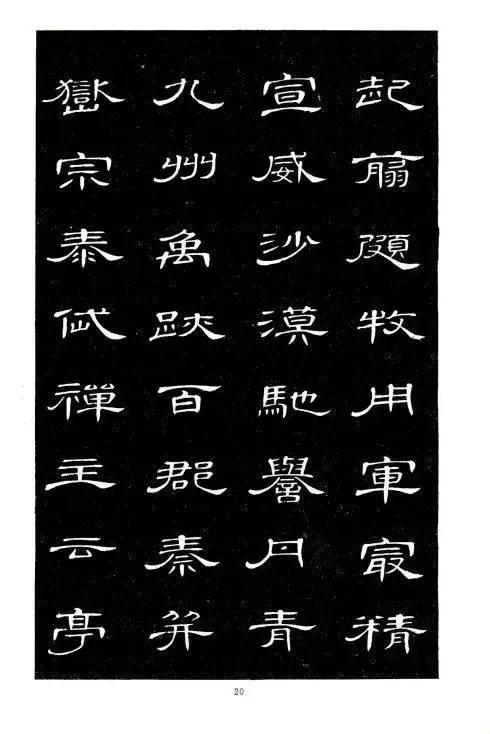 起翦頗牧用軍冣精
宣威沙漠馳譽丹青
九州禹跡百郡秦并
嶽宗泰岱禪主云亭
20